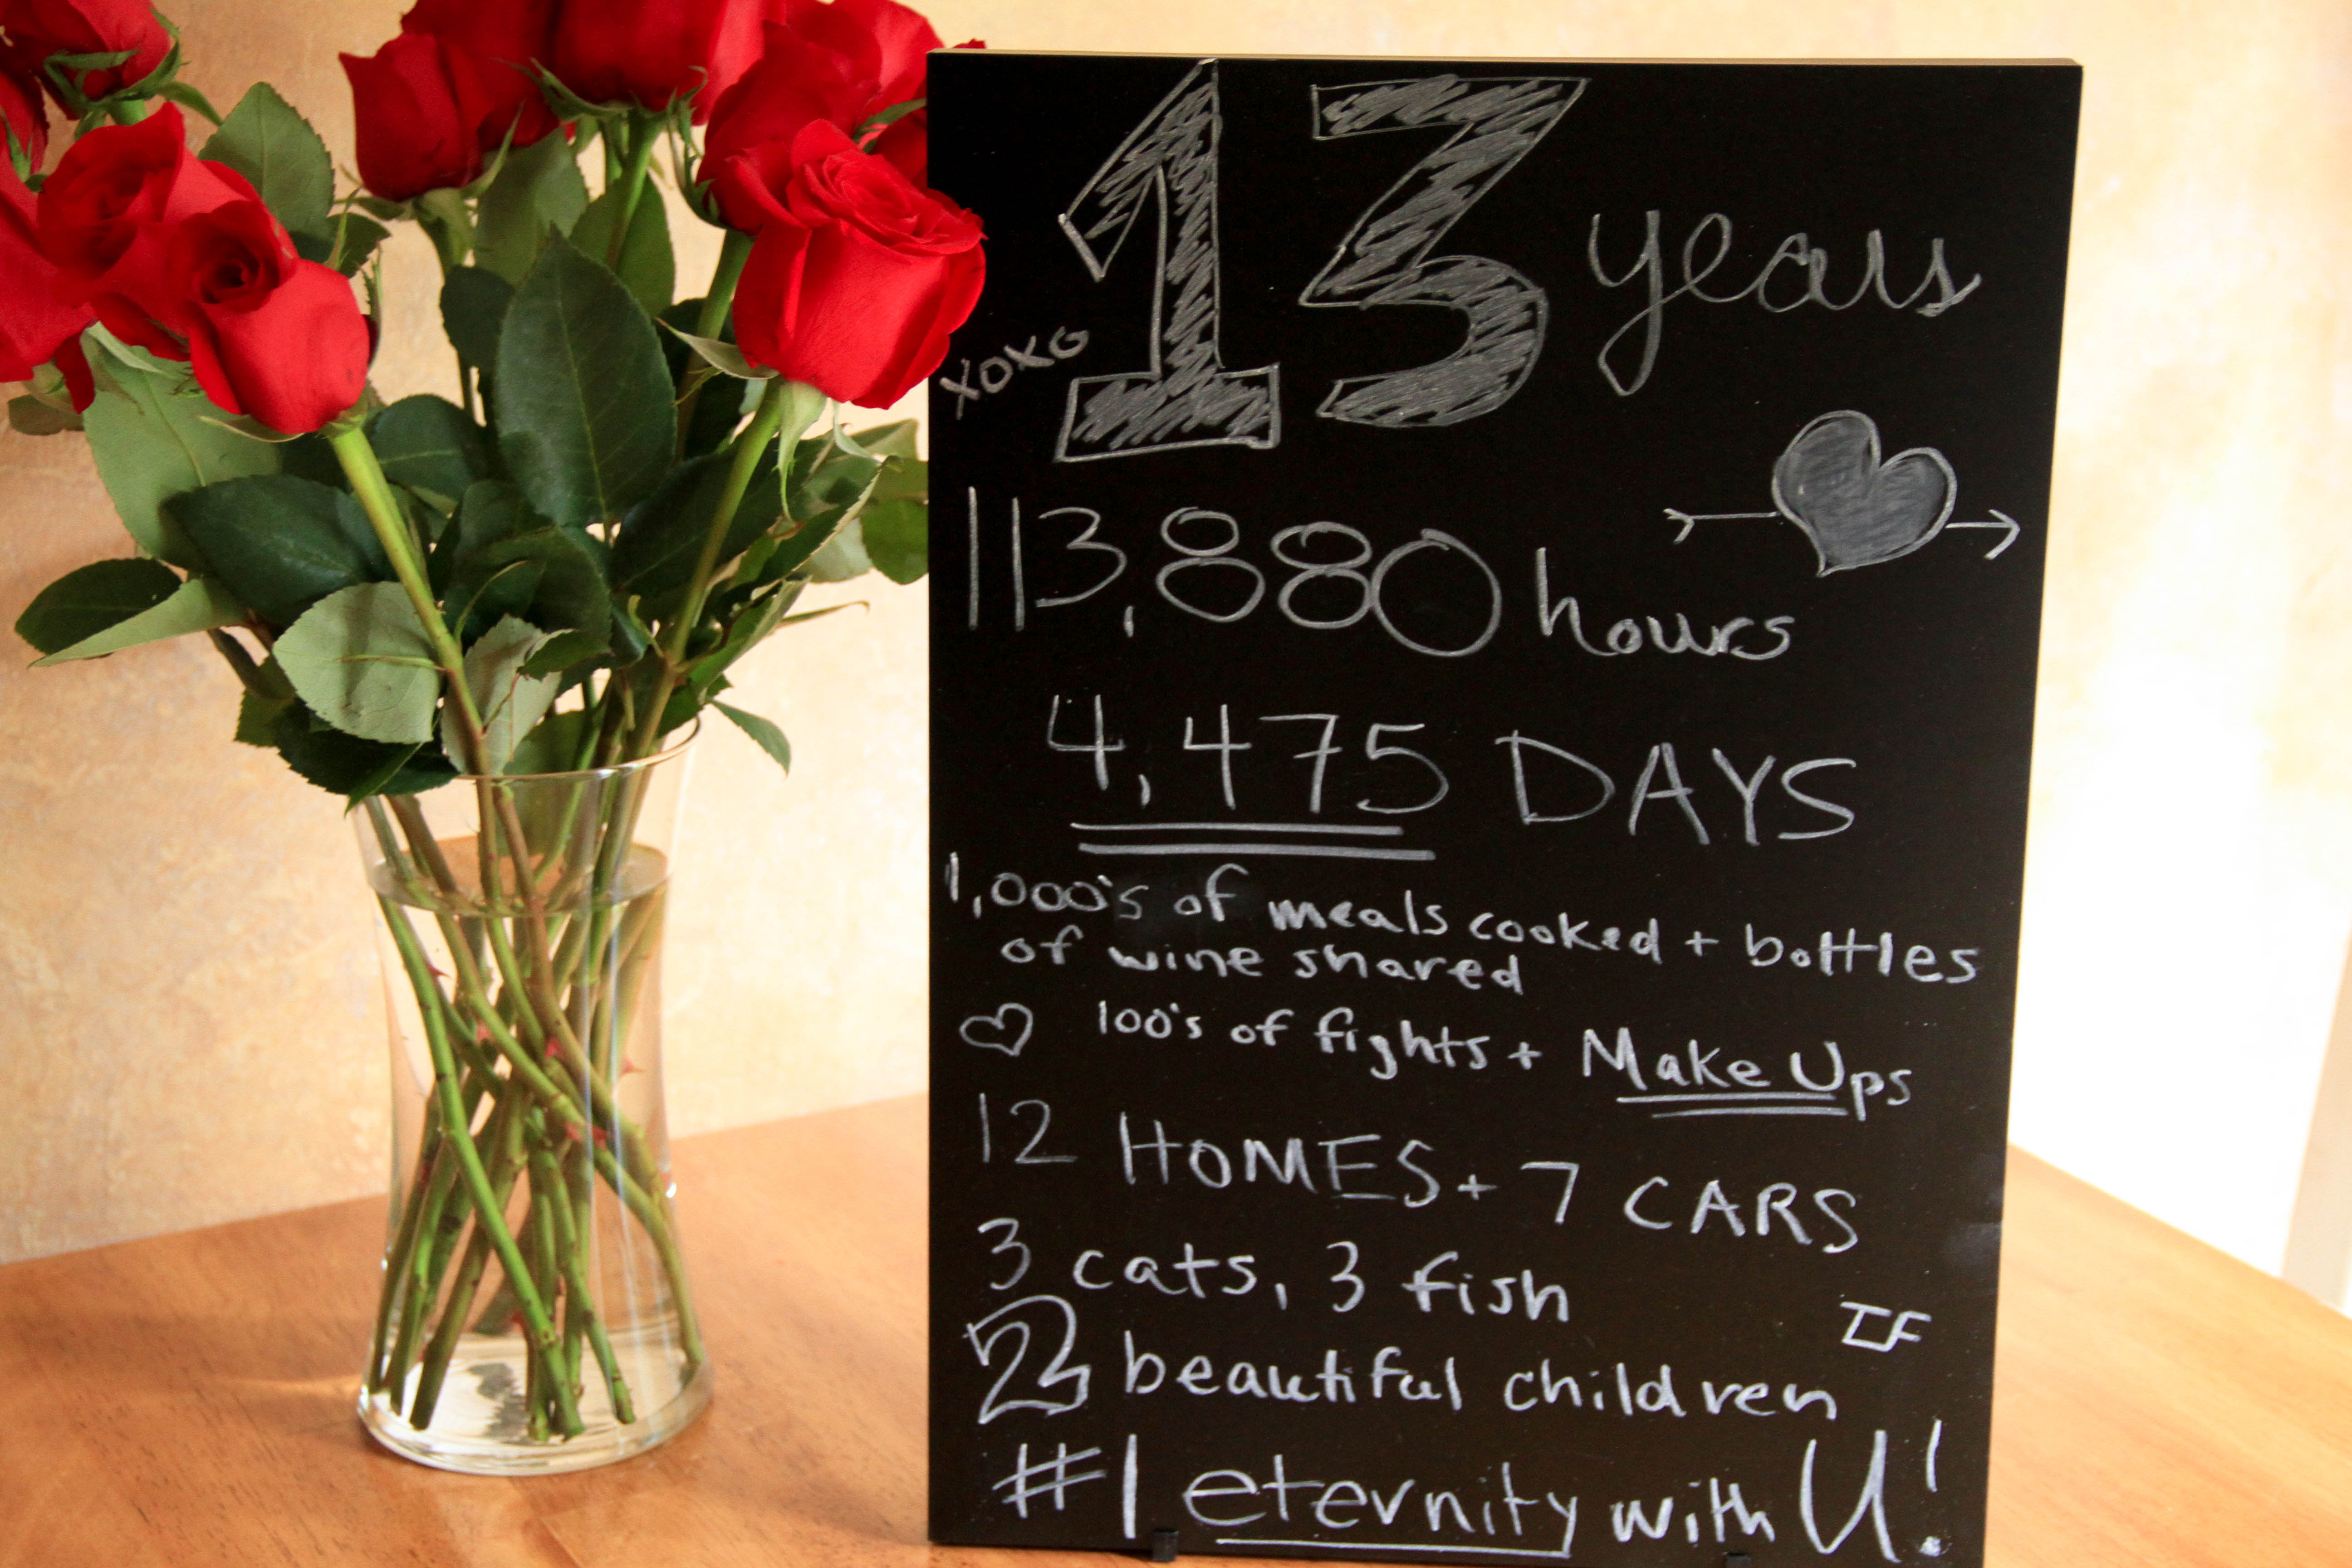 13 years
xoxo
113,880 hours
4,475 DAYS
1,000's of meals cooked + bottles
of wine shared
100's of fights + Make Ups
12 HOMES + 7 CARS
3 cats, 3 fish
2 beautiful children
IF
#1 eternity with U!